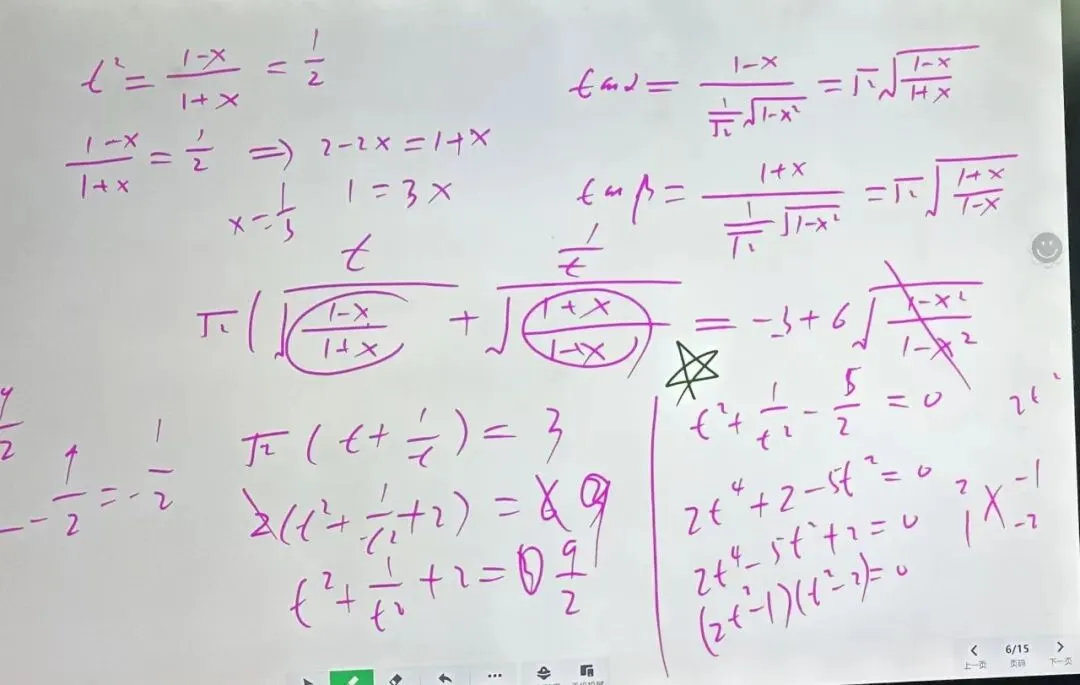 t² = (1-x)/(1+x) = 1/2
(1-x)/(1+x) = 1/2 ⇒ 2-2x = 1+x
1 = 3x
x = 1/3
tanα = (1-x)/((1/√2)√(1-x²)) = √2 √((1-x)/(1+x))
tanβ = (1+x)/((1/√2)√(1-x²)) = √2 √((1+x)/(1-x))
t 1/t
√2 (√((1-x)/(1+x)) + √((1+x)/(1-x))) = -3+6 √((1-x²)/(1-x²))
√2 (t + 1/t) = 3
2(t² + 1/t² + 2) = 9
t² + 1/t² + 2 = 9/2
- 1/2 = - 1/2
t² + 1/t² - 5/2 = 0
2t²
2t⁴ + 2 - 5t² = 0
2t⁴ - 5t² + 2 = 0
(2t²-1)(t²-2) = 0
2 -1
1 -2
6/15
上一页 页码 下一页